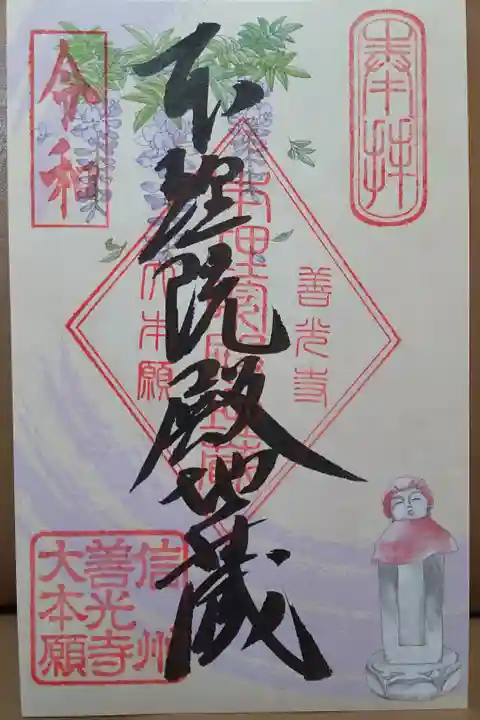 奉拝
善光寺
本理院殿地蔵
本理院殿地蔵
大本願
令和
信州
善光寺
大本願